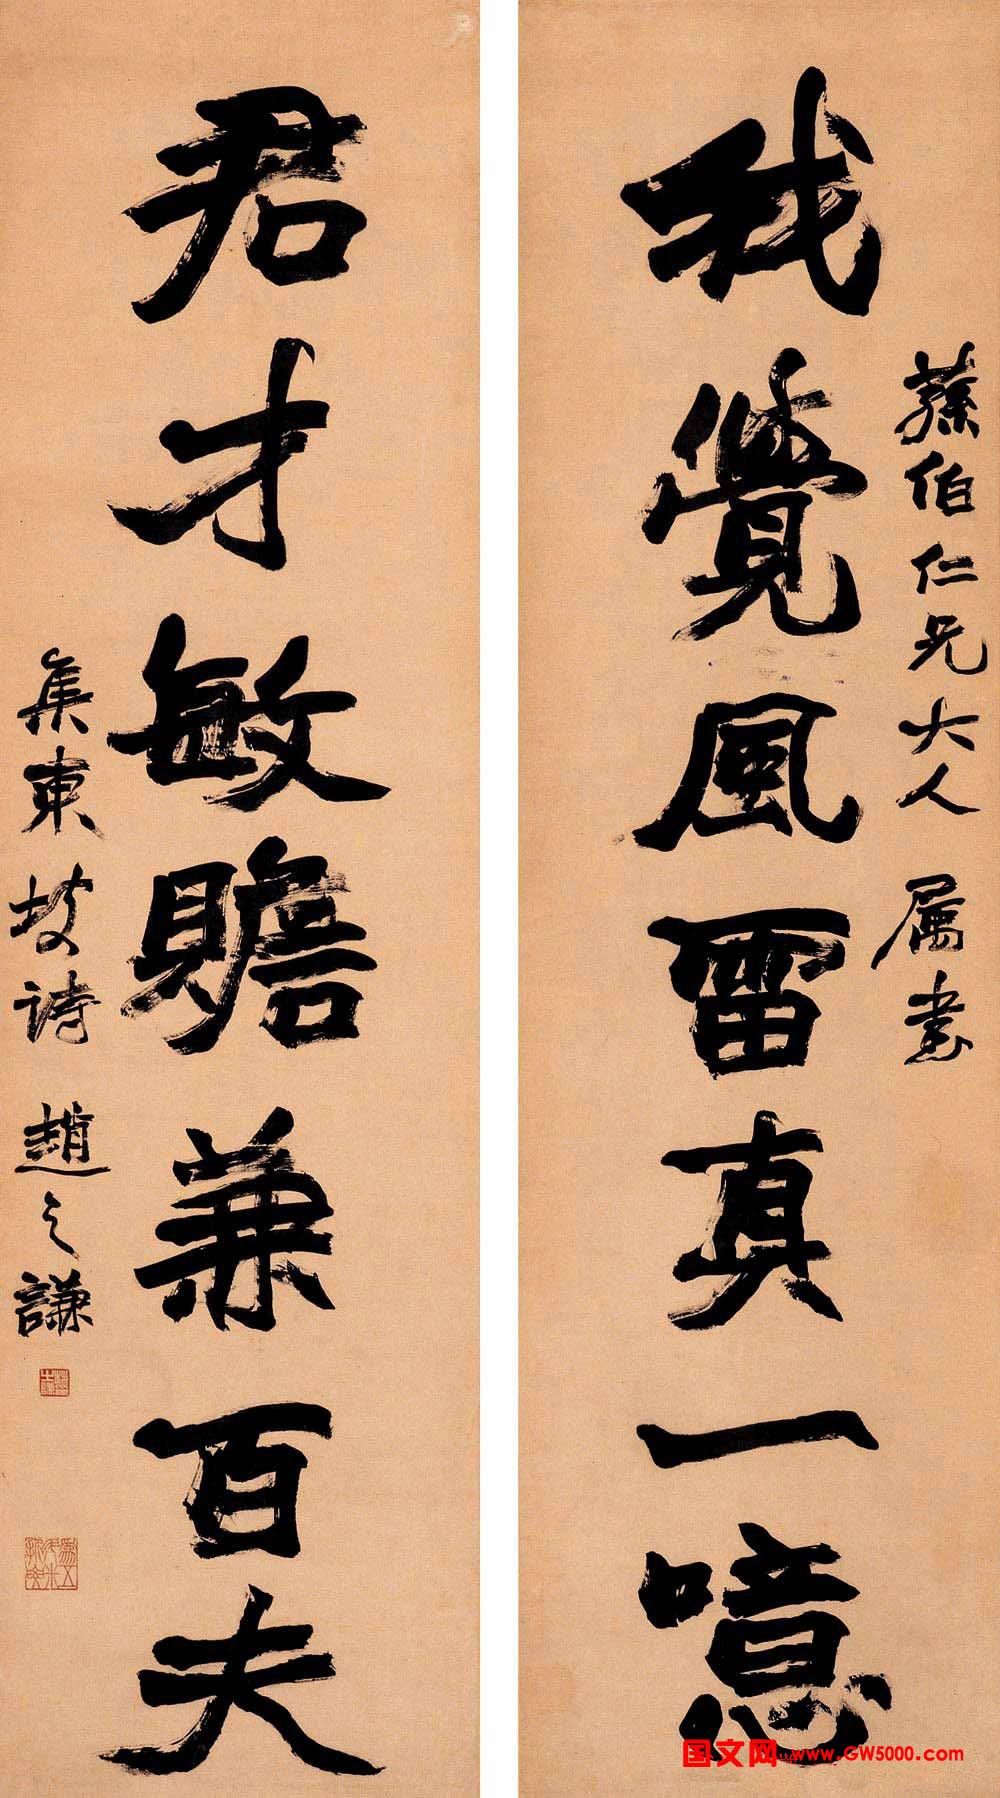 我覺風雷真一噫
蓀伯仁兄大人屬書
君才敏贍兼百夫
集東坡詩趙之謙
国文网 www.GW5000.com